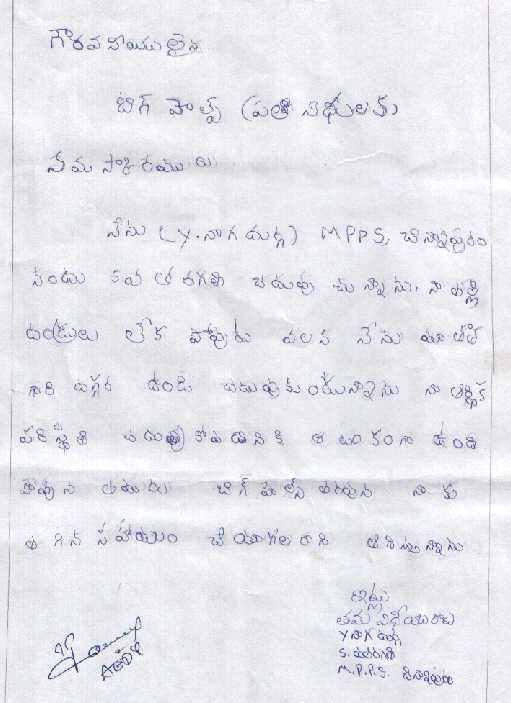 గౌరవనీయులైన
బిగ్ హెల్ప్ ప్రతినిధులకు
నమస్కారములు
నేను (Y. నాగ దుర్గ) MPPS, చిన్నాపురం
నందు 5వ తరగతి చదువు చున్నాను. నా తల్లి
దండ్రులు లేక పోవుట వలన నేను మా తాత
గారి దగ్గర ఉండి చదువుకుంటున్నాను నా ఆర్థిక
పరిస్థితి చదువుకోవడానికి ఆటంకంగా ఉంది
కావున తమరు బిగ్ హెల్ప్ తరపున నాకు
తగిన సహాయం చేయగలరని ఆశిస్తున్నాను
ఇట్లు
తమ విధేయురాలు
Y నాగ దుర్గ
5. తరగతి
M.P.P.S. చిన్నాపురం